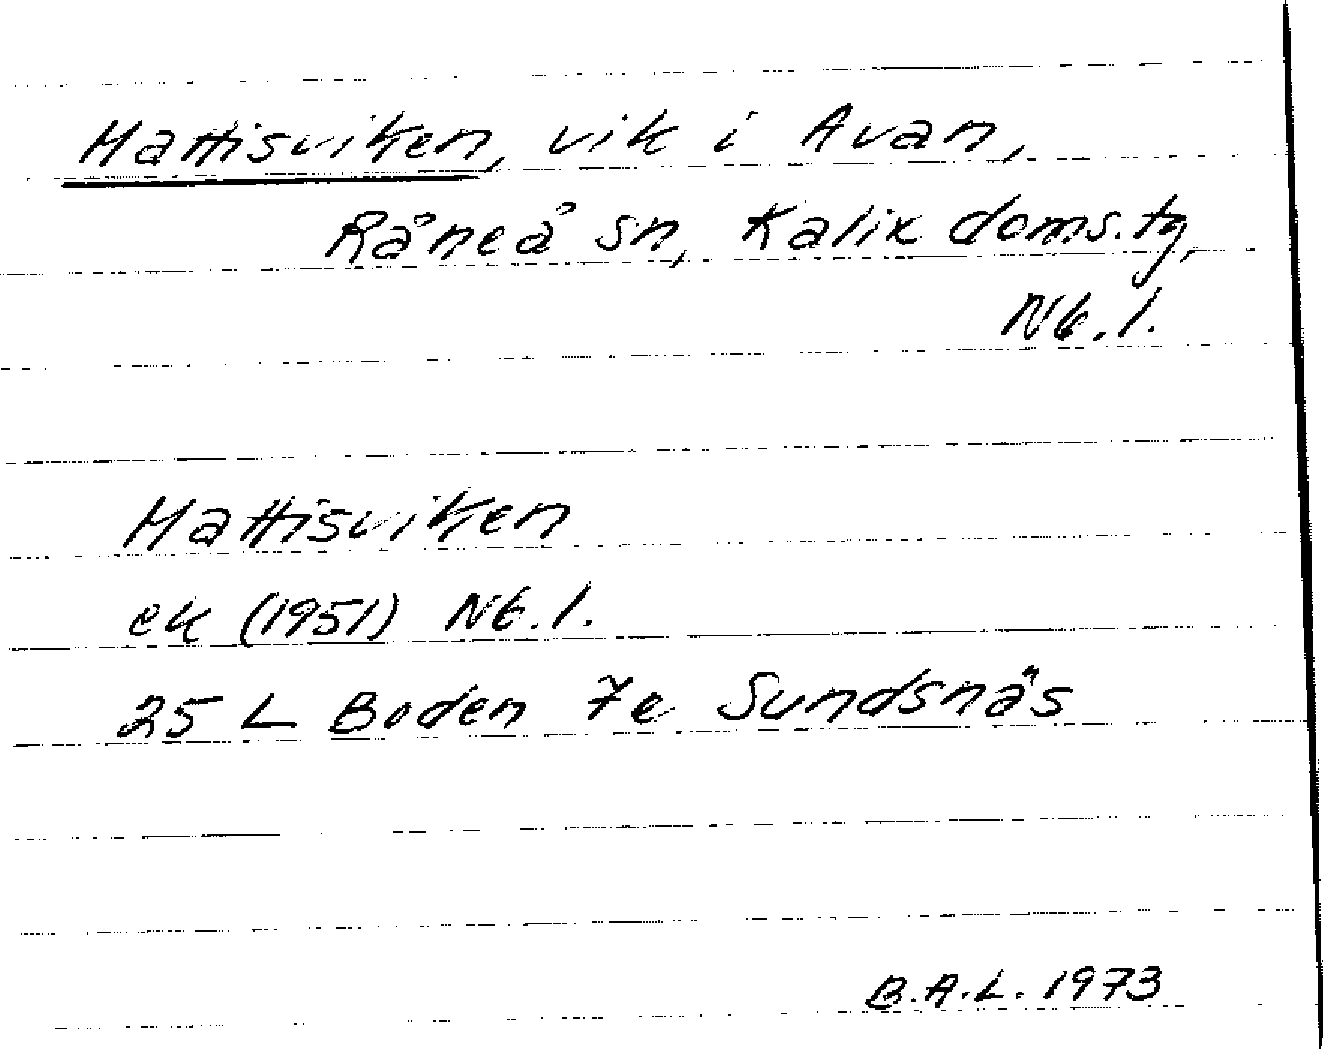 Mattisviken, vik i Avan,
Råneå sn, Kalix doms.tg,
Nb.l.
Mattisviken
ek (1951) Nb.l.
25 L Boden 7e Sundsnäs
B.A.L. 1973